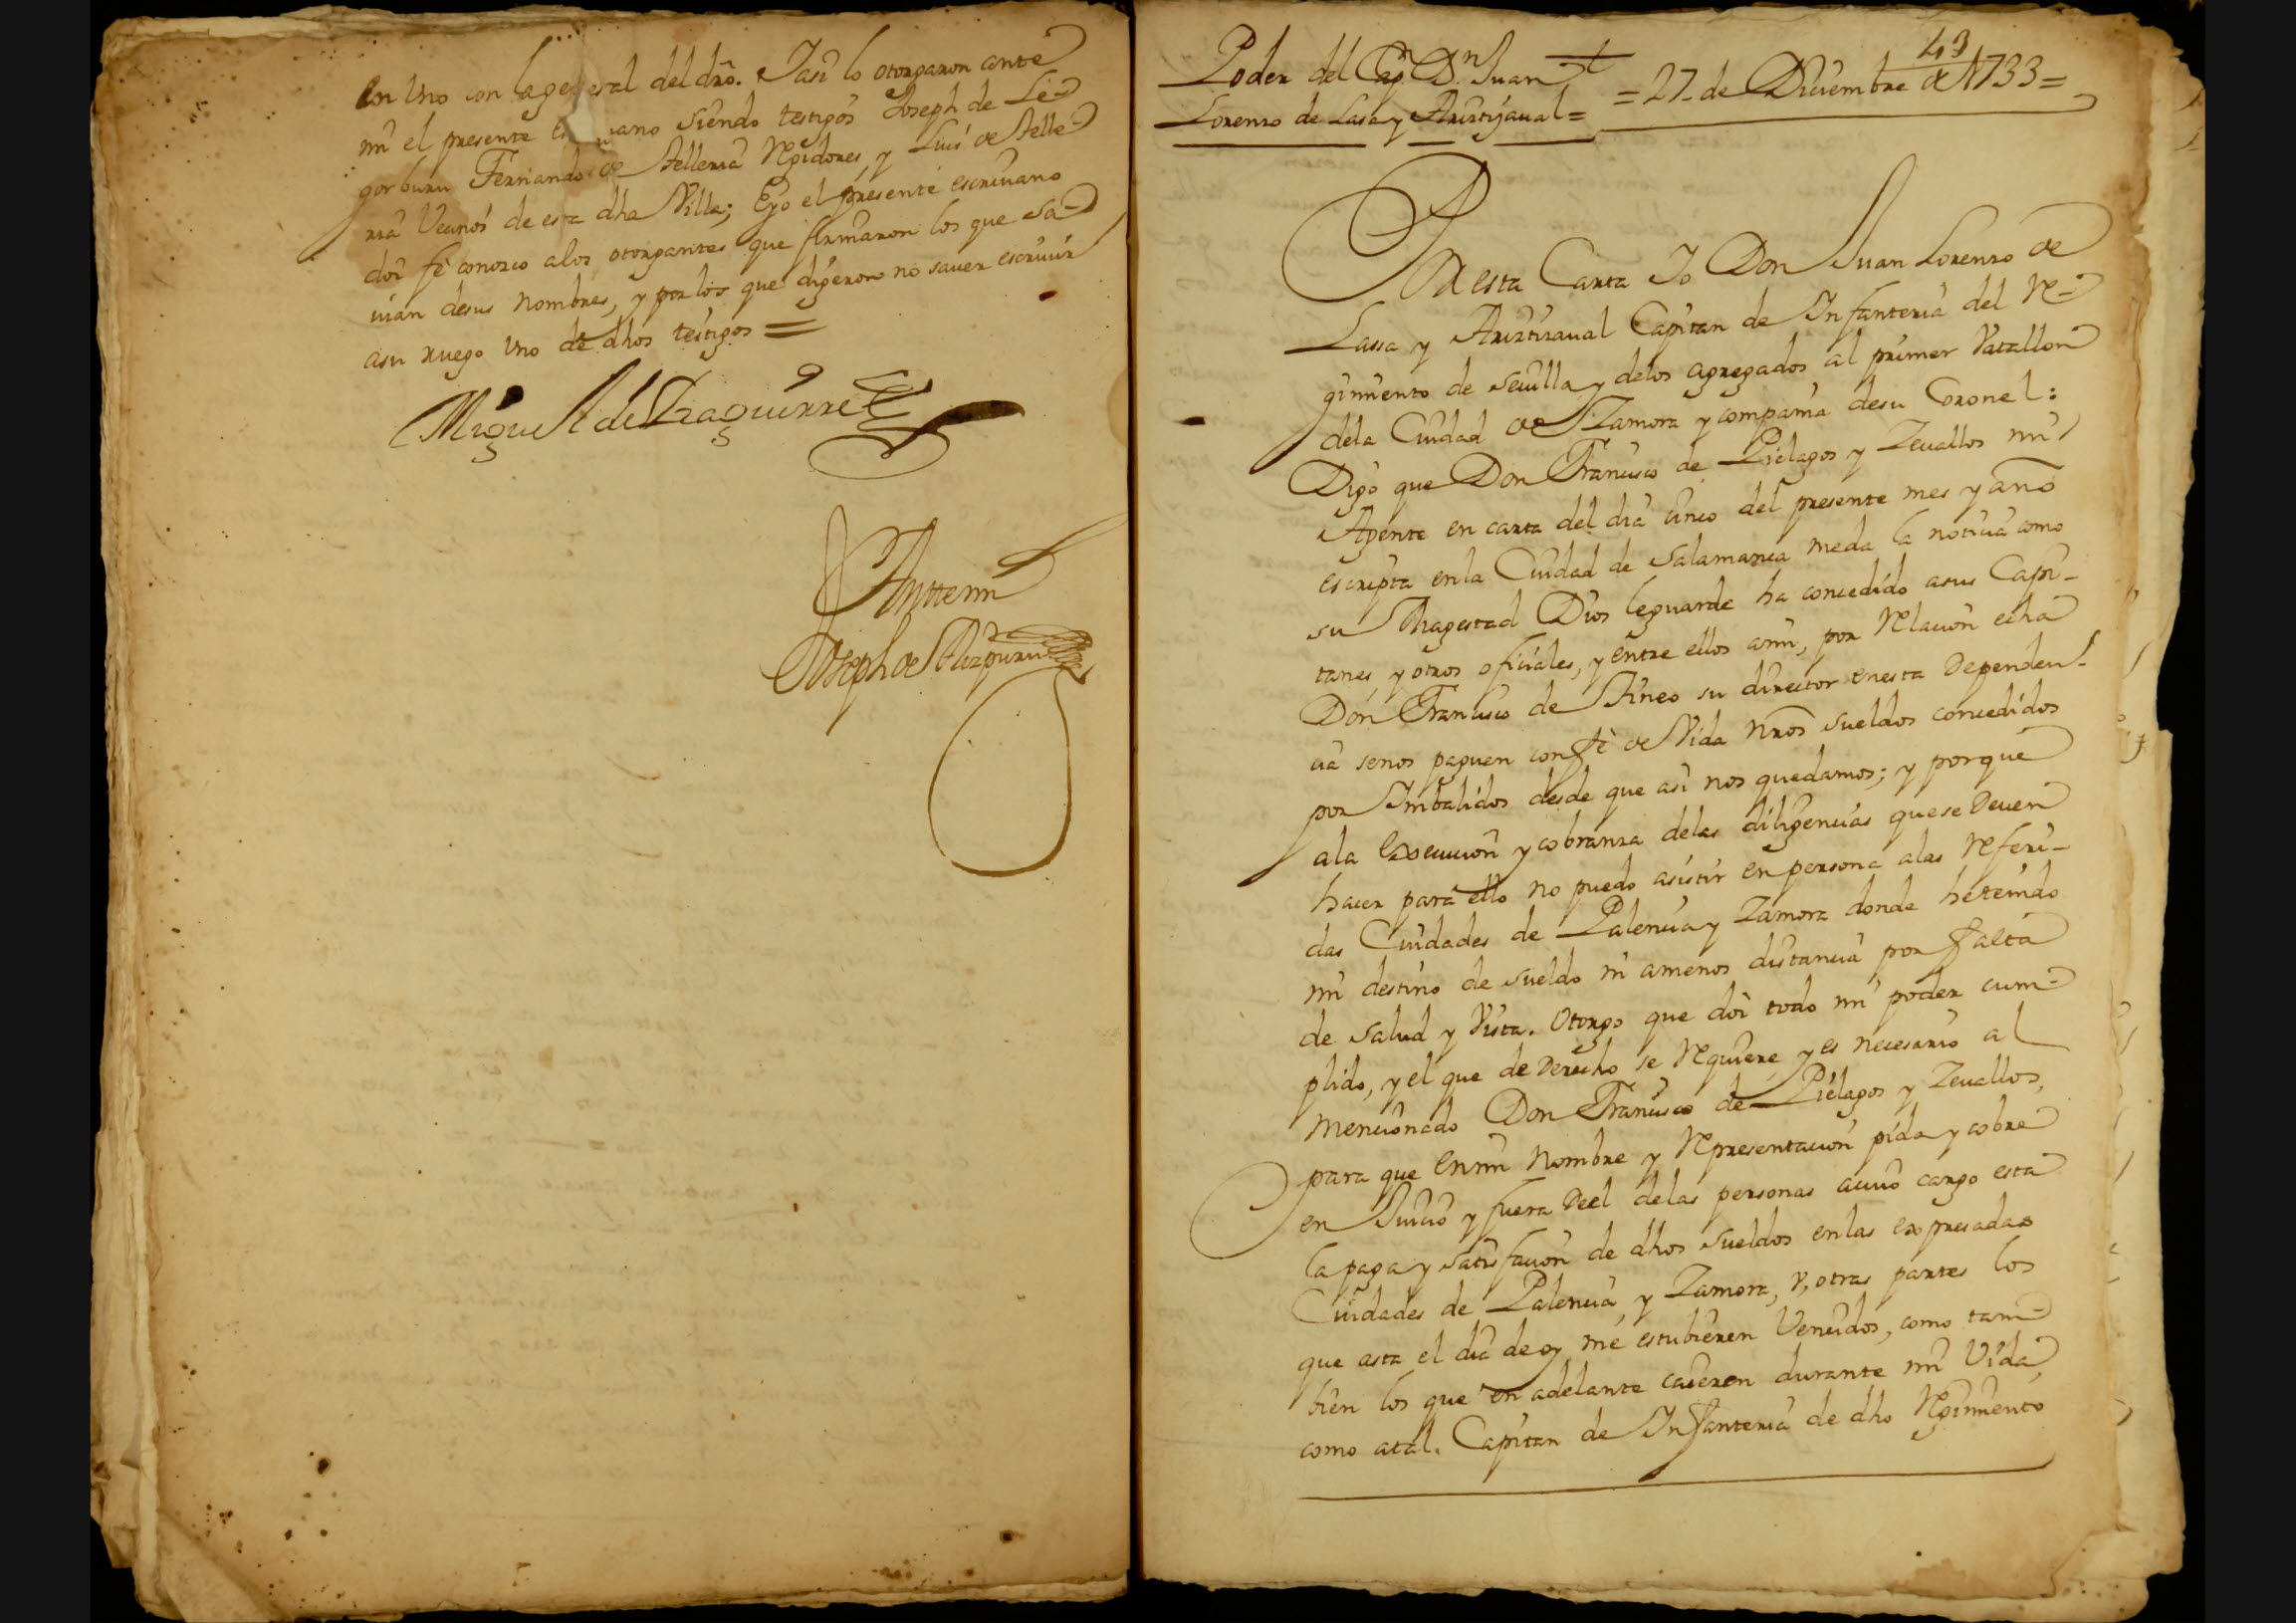 en Uno con la general del dro. Y asi lo otorgaron ante
mi el presente siendo testigos Joseph de Le-
gorburu Fernando de Telleria Regidores, y Luis de Telle-
ria Vecinos de esta dha Villa; Eyo el presente escrivano
doi fè conozco alos otorgantes que firmaron los que sa-
vian desus nombres, y por los que digeron no saver escrivir
asu ruego Uno de dhos testigos =
Miguel de Yzaguirre
Antemi
Joseph de Aizpuru
43
Poder del Capn Dn Juan
Lorenzo de Lasa y Ariztizaval =
= 27 de Diciembre de 1733 =
Por esta Carta Yo Don Juan Lorenzo de
Lassa y Ariztizaval Capitan de Infanteria del Re-
gimiento de Sevilla y delos agregados al primer Vatallon
dela Ciudad de Zamora y compania desu Coronel:
Digo que Don Francisco de Pielagos y Zevallos mi
Agente en carta del dia cinco del presente mes y año
escripta enla Ciudad de Salamanca meda la noticia como
su Magestad Dios leguarde ha concedido asus Capi-
tanes, y otros oficiales, y entre ellos ami, por Relacion echa
Don Francisco de Tineo su director enesta Dependen-
cia senos paguen con fè de Vida nros sueldos concedidos
por Imbalidos desde que asi nos quedamos; y porque
ala Execucion y cobranza delas diligencias quese Deven
hacer para ello no puedo asistir en persona alas Referi-
das Ciudades de Palencia y Zamora donde hetenido
mi destino de sueldo ni amenos distancia por falta
de salud y Vista. Otorgo que doi todo mi poder cum-
plido, y el que de Derecho se Requiere, y es necesario al
mencionado Don Francisco de Pielagos y Zevallos,
para que enmi nombre y Representacion pida y cobre
en Juicio y fuera Deel delas personas acuio cargo esta
la paga y satisfacion de dhos sueldos enlas expresadas
Ciudades de Palencia, y Zamora, y, otras partes los
que asta el dia deoy me estubieren Vencidos, como tam-
bien los que en adelante caieren durante mi Vida
como atal. Capitan de Infanteria de dho Regimiento